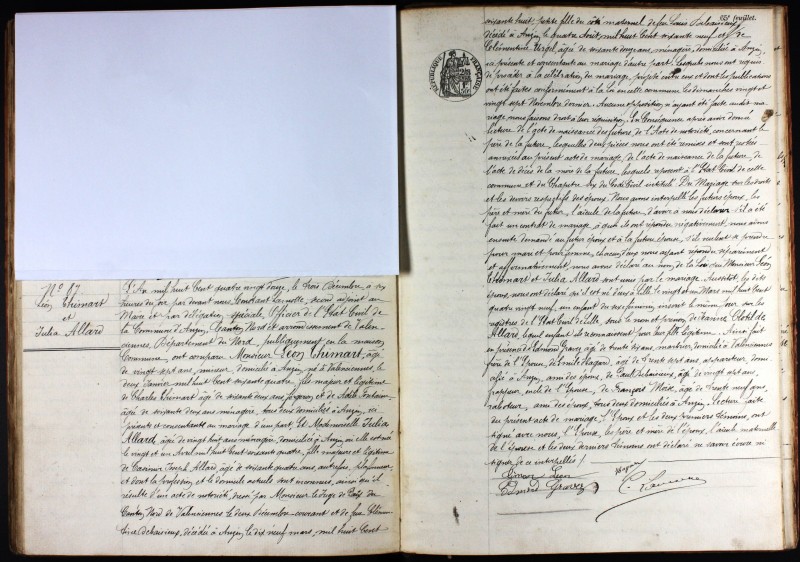 Nº 87
Léon Thumart
et
Julia Allard
L'An mil huit Cent quatre vingt onze, le trois Décembre, à six
heures du soir par devant nous Constant Lamotte, second adjoint au
Maire et par délégation spéciale, Officier de l'Etat Civil de
la Commune d'Anzin, Canton Nord et arrondissement de Valen-
ciennes, Département du Nord, publiquement en la maison
Commune, ont comparu Monsieur Léon Thumart, âgé
de vingt sept ans, mineur, domicilié à Anzin, né à Valenciennes, le
deux Janvier mil huit Cent soixante quatre, fils majeur et légitime
de Charles Thumart âgé de soixante deux ans, et de Adèle
âgée de soixante deux ans ménagère, tous deux domiciliés à Anzin, ici
présents et consentants au mariage d'une part, Et Mademoiselle Julia
Allard, âgée de vingt sept ans ménagère, domiciliée à Anzin, où elle est née
le vingt et un Avril mil huit Cent soixante quatre, fille majeure et légitime
de Casimir Joseph Allard âgé de soixante quatre ans autrefois
et dont la profession et le domicile actuels sont inconnus, ainsi qu'il
résulte d'un acte de notoriété, dressé par Monsieur le Juge de Paix du
Canton Nord de Valenciennes le deux Décembre courant et de feu Clémen-
tine Debavieux, décédée à Anzin, le dix neuf mars, mil huit Cent
feuillet.
RÉPUBLIQUE FRANÇAISE
soixante huit; petite fille du côté maternel de feu Louis
décédé à Anzin, le quatre Août, mil huit Cent soixante neuf et de
Clémentine Urgel, âgée de soixante onze ans, ménagère, domiciliée à Anzin,
ici présente et consentante au mariage d'autre part. Lesquels nous ont requis
de procéder à la célébration du mariage projeté entre eux et dont les publications
ont été faites conformément à la loi en cette commune les dimanches vingt et
vingt sept Novembre dernier. Aucune opposition n'ayant été faite audit ma-
riage, nous faisons droit à leur réquisition. En Conséquence après avoir donné
lecture de l'acte de naissance du futur, de l'Acte de notoriété, concernant le
père de la future, lesquelles deux pièces nous ont été remises et sont restées
annexées au présent acte de mariage, de l'acte de naissance de la future, de
l'acte de décès de la mère de la future, lesquels reposent à l'Etat Civil de cette
commune et du Chapitre six du Code Civil intitulé: Du Mariage sur les droits
et les devoirs respectifs des époux. Nous avons interpellé les futurs époux, les
père et mère du futur, l'aïeule de la future, d'avoir à nous déclarer s'il a été
fait un contrat de mariage, à quoi ils ont répondu négativement, nous avons
ensuite demandé au futur époux et à la future épouse, s'ils veulent se prendre
pour mari et pour femme, chacun d'eux nous ayant répondu séparément
et affirmativement, nous avons déclaré au nom de la Loi que Monsieur Léon
Thumart et Julia Allard sont unis par le mariage. Aussitôt, les dits
époux, nous ont déclaré qu'il est né d'eux à Lille le vingt et un Mars mil huit Cent
quatre vingt neuf, un enfant du sexe féminin, inscrit le même jour sur les
registres de l'Etat Civil de Lille, sous le nom et prénoms de Jeanne Clotilde
Allard, lequel enfant ils reconnaissent pour leur fille légitime. Ainsi fait
en présence de Edmond Gravez, âgé de trente six ans, domicilié à Valenciennes
frère de l'Epoux, de Emile Hagard, âgé de trente sept ans, domi-
cilié à Anzin, ami des époux, de Paul Debavieux, âgé de vingt sept ans,
frappeur, oncle de l'Epouse, de François Moré, âgé de trente neuf ans,
raboteur, ami des époux, tous deux domiciliés à Anzin. Lecture faite
du présent acte de mariage, l'Epoux et les deux premiers témoins, ont
signé avec nous, l'Epouse, les père et mère de l'époux, l'aïeule maternelle
de l'épouse et les deux derniers témoins ont déclaré ne savoir écrire ni
signer de ce interpellés.
Léon
Edmond Gravez